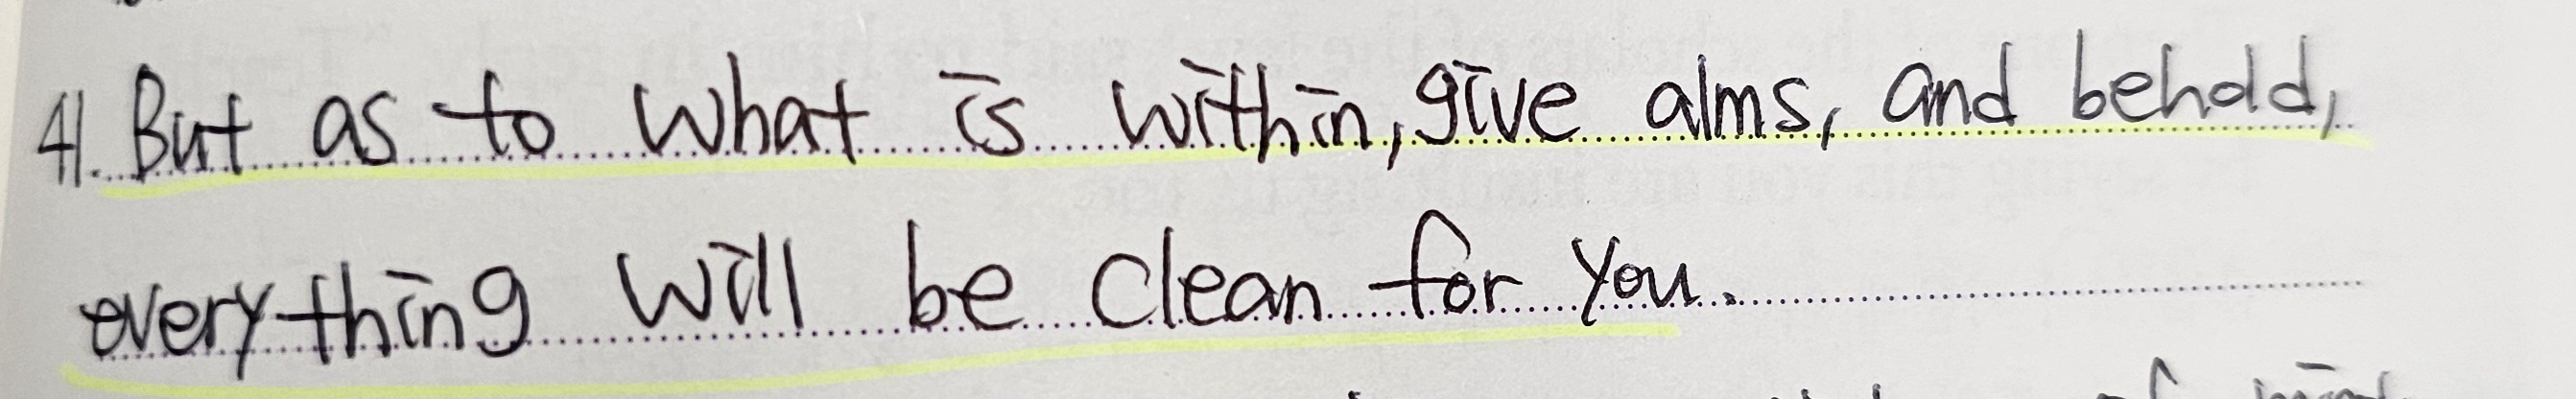 41. But as to what is within, give alms, and behold,
everything will be clean for you.